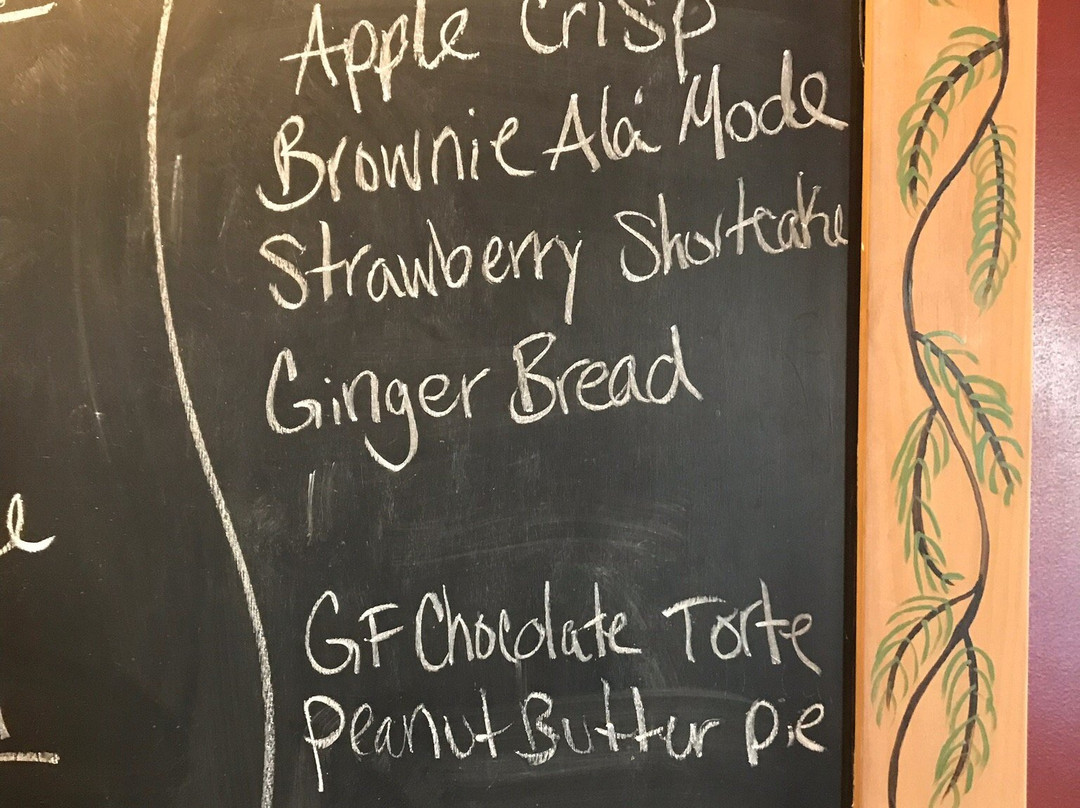 Apple Crisp
Brownie Alá Mode
Strawberry Shortcake
Ginger Bread
GF Chocolate Torte
Peanut Butter pie